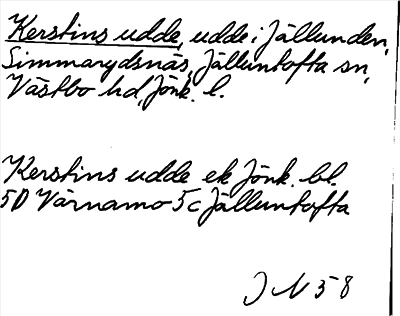 Kerstins udde, udde i Jällunden,
Simmarydsnäs, Jälluntofta sn,
Västbo hd, Jönk. l.
Kerstins udde ek Jönk. bl.
5D Värnamo 5c Jälluntofta
J N 58